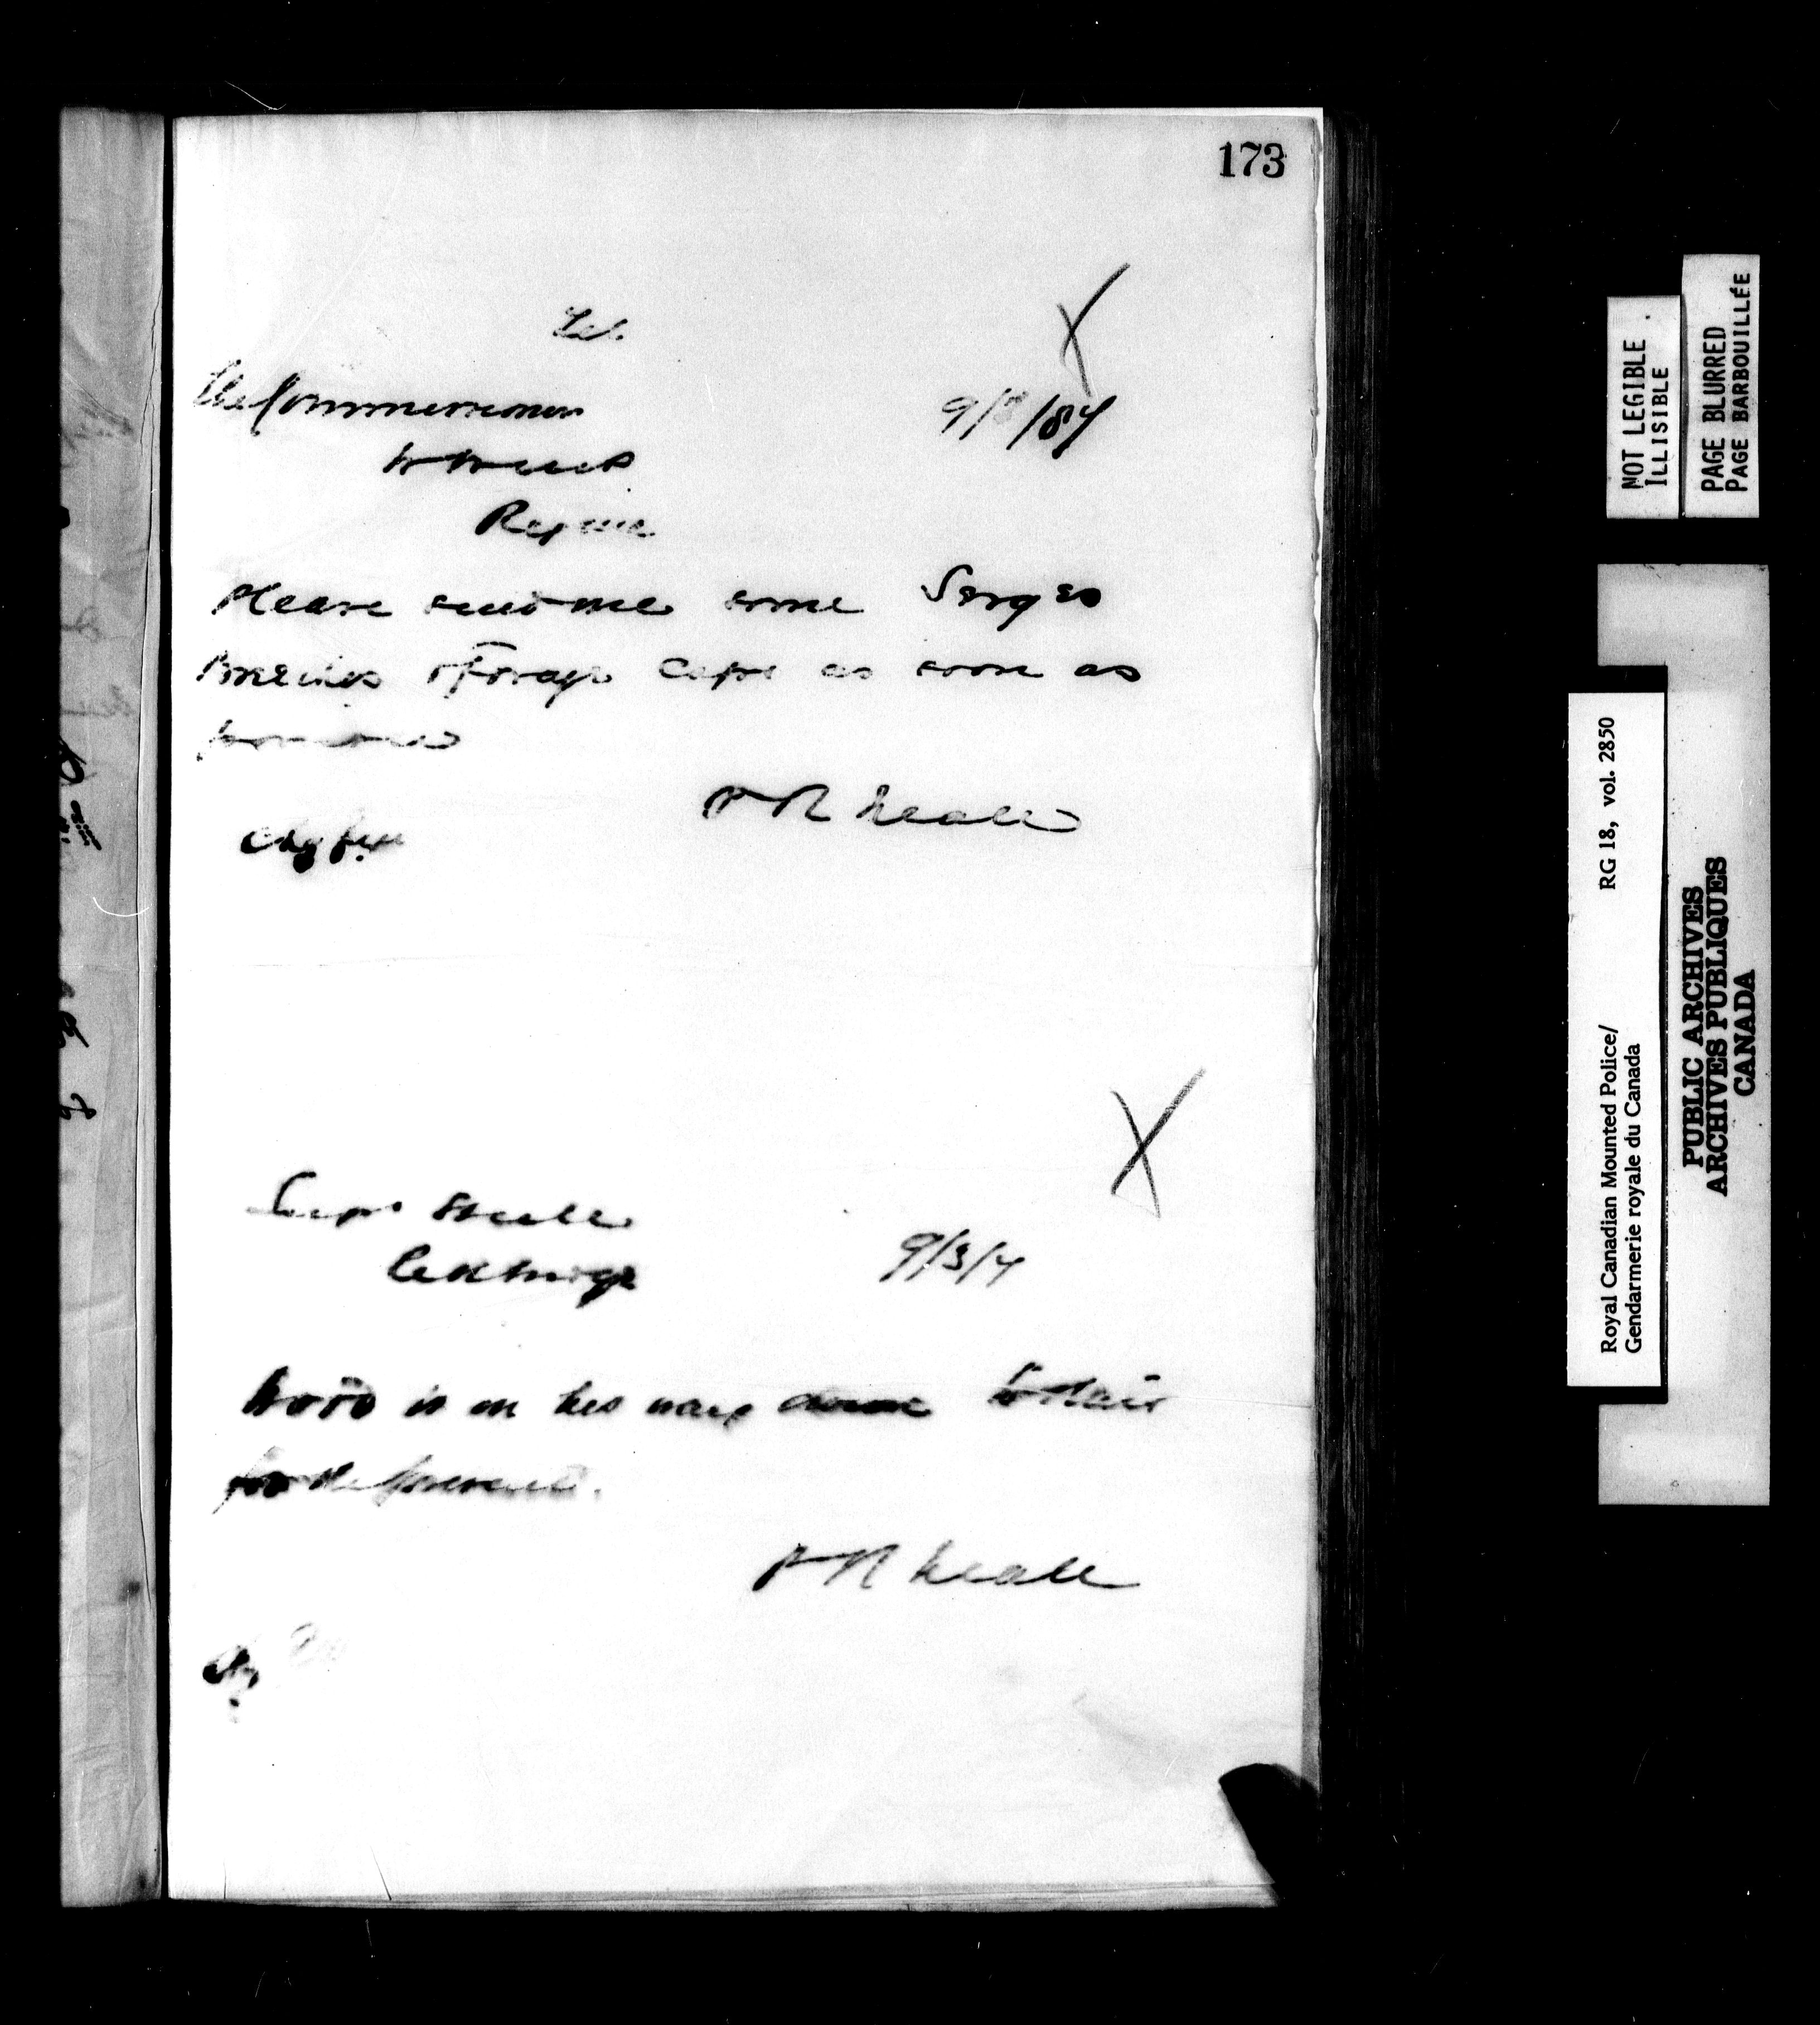 173
Tel.
The Commissioner
9/3/87
N W M P
Regina
Please send me some Serges
Breeches & Forage Caps as soon as
possible
P R Neale
Chg
Supt Steele
Lethbridge
9/3/7
Wood is on his way down to
for the present.
P R Neale
Chg
NOT LEGIBLE
ILLISIBLE
PAGE BLURRED
PAGE BARBOUILLÉE
Royal Canadian Mounted Police/ RG 18, vol. 2850
Gendarmerie royale du Canada
PUBLIC ARCHIVES
ARCHIVES PUBLIQUES
CANADA